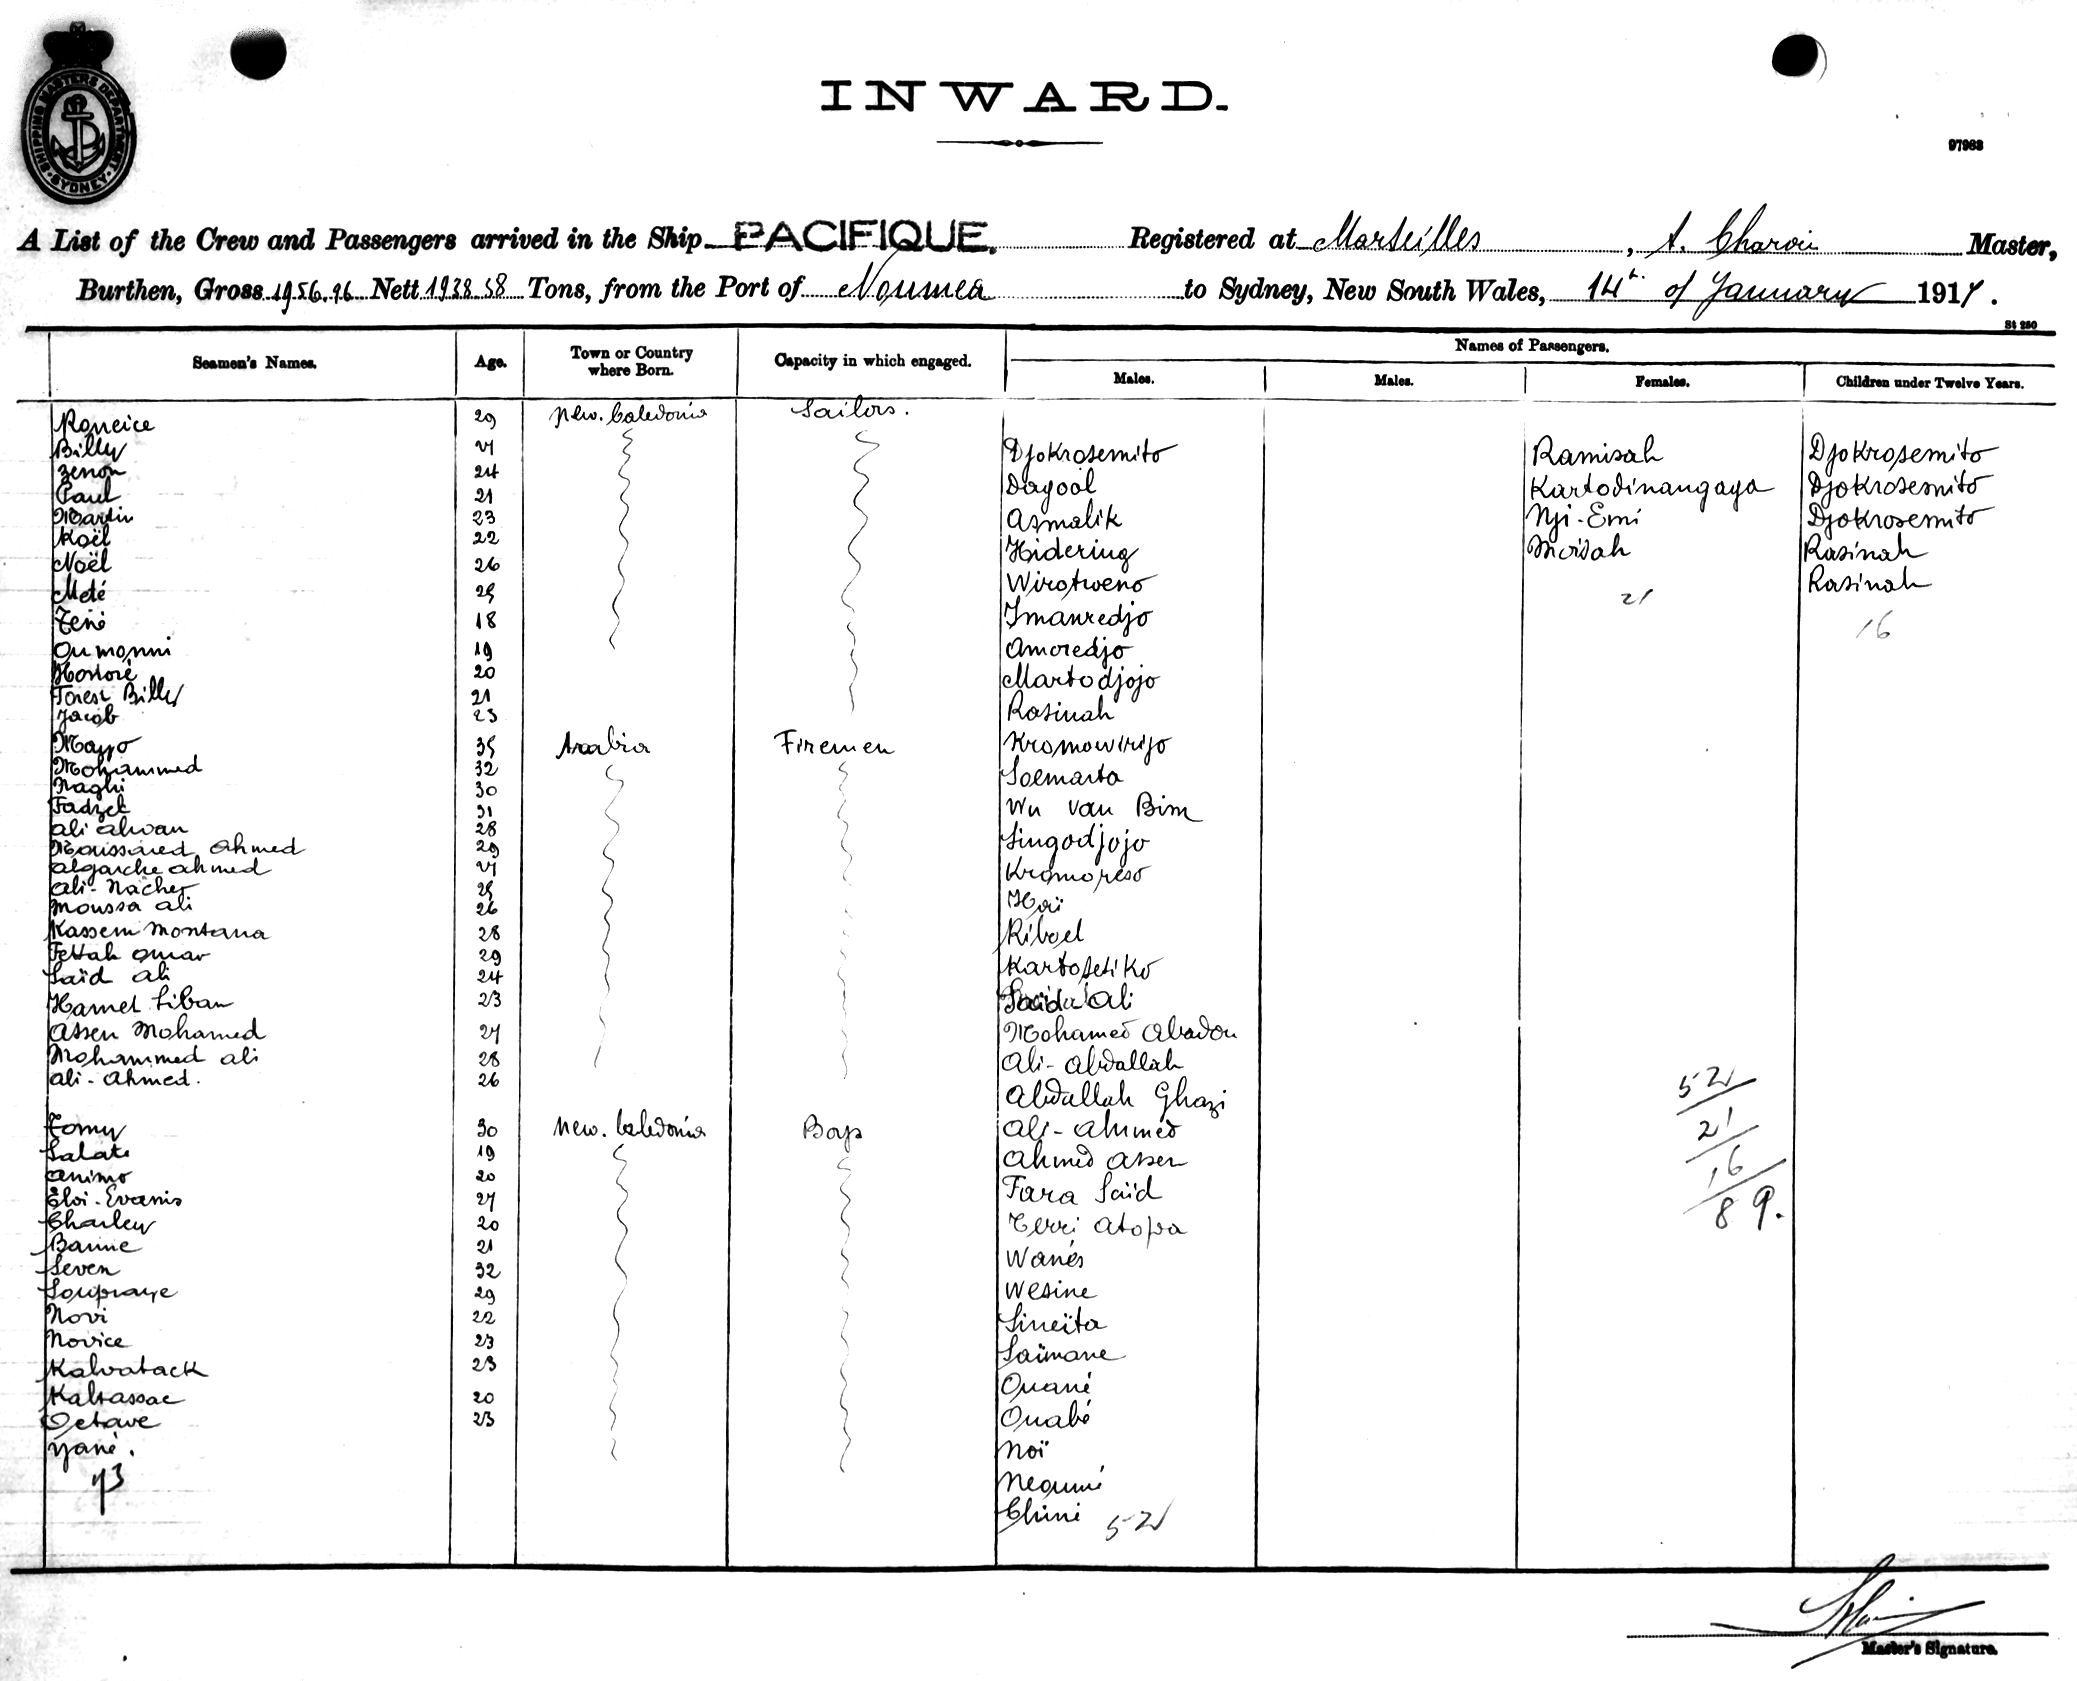 SHIPPING MASTERS DEPARTMENT
SYDNEY
INWARD.
97963
A List of the Crew and Passengers arrived in the Ship PACIFIQUE. Registered at Marseilles, A. Charvin Master,
Burthen, Gross 1956.96 Nett 1938.58 Tons, from the Port of Noumea to Sydney, New South Wales, 14th of January 1917.
St 250
Seamen's Names. Age. Town or Country where Born. Capacity in which engaged. Names of Passengers.
Males. Males. Females. Children under Twelve Years.
29 New. Caledonia Sailors.
Billy 27 Djokrosemito Ramisah Djokrosemito
Zenon 24 Dayool Kartodinangaya Djokrosemito
Paul 21 Asmalik Nji-Emi Djokrosemito
Martin 23 Hidering Moisah Rasinah
Koël 22 Wirotweno 21 Rasinah
Noël 26 Imanredjo 16
Meté 25 Amoredjo
Zéné 18 Martodjojo
Oumonni 19 Rasinah
Honoré 20
Forest Billy 21
Jacob 23
Mayo 35 Arabia Firemen Kromowirijo
Mohammed 32 Soemarta
Naghi 30 Wu van Bim
Fadzel 31 Singodjojo
Ali Alwan 28 Kromoreso
Ahmed 29 Haï
Algarche Ahmed 27 Riboel
Ali-Nacher 25 Kartosetiko
Moussa Ali 26 Saïda Ali
Kassem Montana 28 Mohamed Abadou
Fettah Omar 29 Ali-Abdallah
Saïd Ali 24 Abdallah Ghazi
Hamet Liban 23 Ali-Ahmed
Assen Mohamed 27 Ahmed Assen
Mohammed Ali 28 Fara Saïd
Ali-Ahmed. 26 Terri Atopa
Tomy 30 New. Caledonia Boys Wanés
Salate 19 Wesine
Animo 20 Sineïta
Eloi-Evanis 27 Saïmane
Charley 20 Ouané
Banne 21 Ouabé
Seven 32 Noï
Soupraye 29 Neoumé
Novi 22 Chiné
Novice 23 52
Kalvatack 23
Kaltassac 20
Octave 23
Yané.
73
52
21
16
89.
Master's Signature.